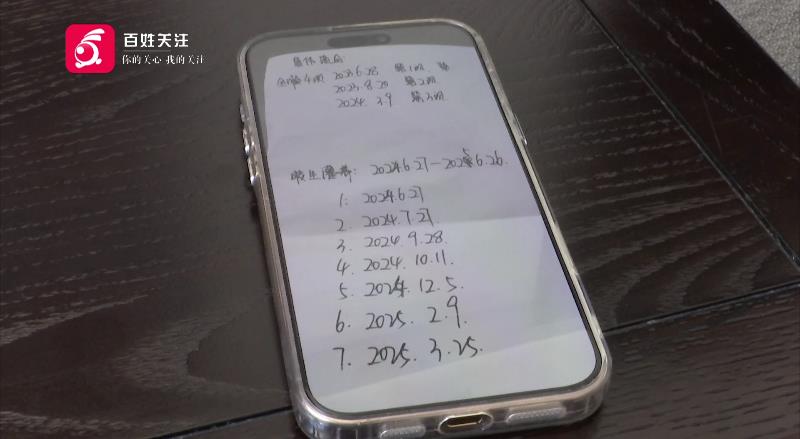 百姓关注
你的关心 我的关注
2023.6.28 第1次
2023.8.20 第2次
2024.3.9 第3次
2024.6.27-2025.6.26.
1. 2024.6.27
2. 2024.7.27.
3. 2024.9.28.
4. 2024.10.11.
5. 2024.12.5.
6. 2025.2.9.
7. 2025.3.25.